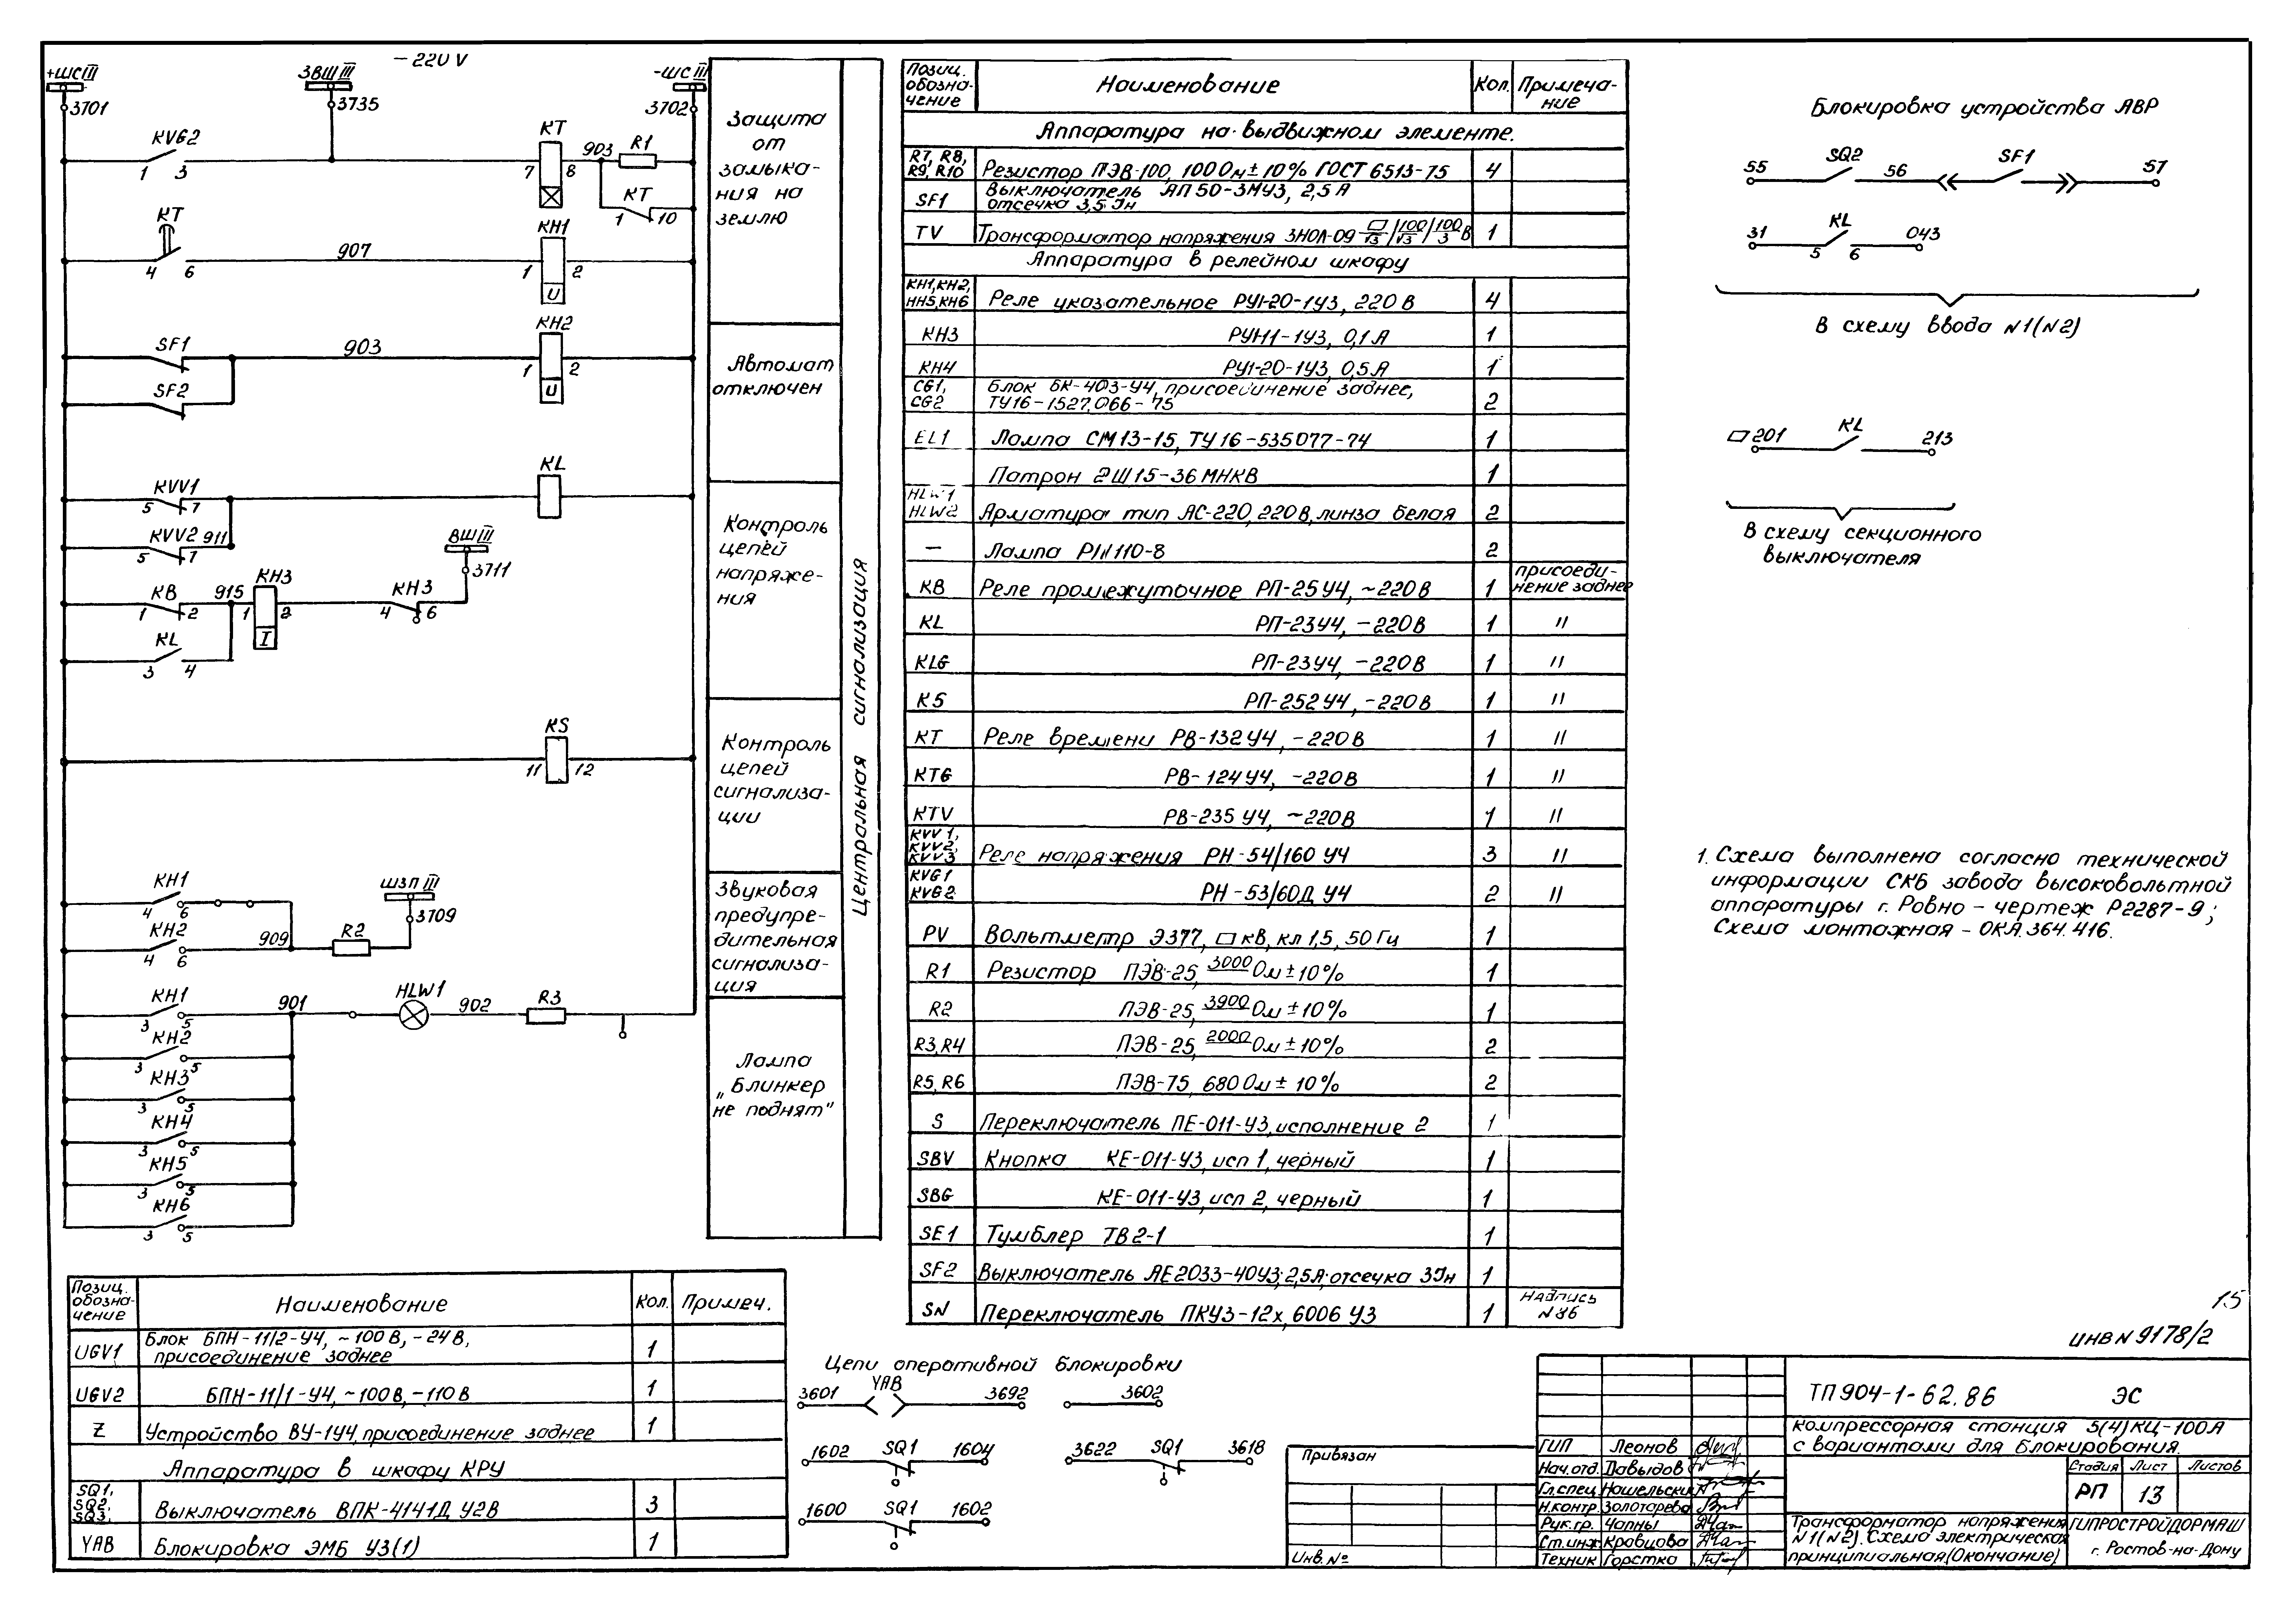 − 220 V
+ШС III
ЗВШ III
-ШС III
3701
3735
3702
KVG2
1 3
KT
7 8
903
R1
KT
1 10
KT
4 6
907
KH1
1 2
U
SF1
903
KH2
1 2
U
SF2
KVV1
5 7
KL
KVV2 911
5 7
ВШ III
3711
KB
1 2
915
KH3
1 2
I
KH3
4 6
KL
3 4
KS
11 12
KH1
4 6
ШЗП III
3709
KH2
4 6
909
R2
KH1
3 5
901
HLW1
902
R3
KH2
3 5
KH3
3 5
KH4
3 5
KH5
3 5
KH6
3 5
Защита
от
замыка-
ния на
землю
Автомат
отключен
Контроль
цепей
напряже-
ния
Контроль
цепей
сигнализа-
ции
Звуковая
предупре-
дительная
сигнализа-
ция
Лампа
„Блинкер
не поднят"
Центральная сигнализация
Позиц. обозна- чение | Наименование | Кол. | Примеча- ние
Аппаратура на выдвижном элементе.
R7, R8, R9, R10 Резистор ПЭВ-100, 100 Ом ± 10% ГОСТ 6513-75 4
SF1 Выключатель АП 50-3МУЗ, 2,5 А
отсечка 3,5 Iн
TV Трансформатор напряжения ЗНОЛ-09 ▱/√3 / 100/√3 / 100/3 В 1
Аппаратура в релейном шкафу
KH1, KH2, HH5, KH6 Реле указательное РУ1-20-1У3, 220 В 4
KH3 РУН1-1У3, 0,1 А 1
KH4 РУ1-20-1У3, 0,5 А 1
CG1, CG2 Блок БК-403-У4, присоединение заднее,
ТУ16-1527,066-75 2
EL1 Лампа СМ13-15, ТУ16-535077-74 1
Патрон 2Ш15-36 МНКВ 1
HLW1 HLW2 Арматура тип АС-220, 220 В, линза белая 2
— Лампа РН110-8 2
KB Реле промежуточное РП-25У4, ~220 В 1 присоеди- нение заднее
KL РП-23У4, −220 В 1 "
KLG РП-23У4, −220 В 1 "
KS РП-252У4, −220 В 1 "
KT Реле времени РВ-132У4, −220 В 1 "
KTG РВ-124У4, −220 В 1 "
KTV РВ-235 У4, ~220 В 1 "
KVV1, KVV2, KVV3 Реле напряжения РН-54/160 У4 3 "
KVG1 KVG2 РН-53/60Д У4 2 "
PV Вольтметр Э377, ▱ кВ, кл 1,5, 50 Гц 1
R1 Резистор ПЭВ-25, 3000 Ом ± 10% 1
R2 ПЭВ-25, 3900 Ом ± 10% 1
R3, R4 ПЭВ-25, 2000 Ом ± 10% 2
R5, R6 ПЭВ-75, 680 Ом ± 10% 2
S Переключатель ПЕ-011-У3, исполнение 2 1
SBV Кнопка КЕ-011-У3, исп 1, черный 1
SBG КЕ-011-У3, исп 2, черный 1
SE1 Тумблер ТВ2-1 1
SF2 Выключатель АЕ2033-40У3; 2,5А; отсечка 3Iн 1
SN Переключатель ПКУ3-12х, 6006 У3 1 Надпись N 86
Блокировка устройства АВР
55 SQ2 56 SF1 57
31 KL 043
5 6
В схему ввода N1(N2)
▱ 201 KL 213
В схему секционного
выключателя
1. Схема выполнена согласно технической
информации СКБ завода высоковольтной
аппаратуры г. Ровно – чертеж Р2287-9;
Схема монтажная – ОКА.364.416.
Позиц. обозна- чение | Наименование | Кол. | Примеч.
UGV1 Блок БПН-11/2-У4, ~100 В, −24 В,
присоединение заднее 1
UGV2 БПН-11/1-У4, ~100 В, −110 В 1
Z Устройство ВУ-1У4, присоединение заднее 1
Аппаратура в шкафу КРУ
SQ1, SQ2, SQ3, Выключатель ВПК-4141Д У2В 3
YAB Блокировка ЭМБ У3(1) 1
Цепи оперативной блокировки
3601 YAB 3692
3602
1602 SQ1 1604
3622 SQ1 3618
1600 SQ1 1602
Привязан
Инв. №
15
ИНВ N 9178/2
ТП 904-1-62.86 ЭС
Компрессорная станция 5(4)КЦ-100А
с вариантами для блокирования.
ГИП Леонов
Нач.отд. Давыдов
Гл.спец. Нашельский
Н.контр. Золотарева
Рук.гр. Чапны
Ст.инж. Кравцова
Техник Горстка
Стадия Лист Листов
РП 13
Трансформатор напряжения
N1(N2). Схема электрическая
принципиальная (Окончание)
ГИПРОСТРОЙДОРМАШ
г. Ростов-на-Дону